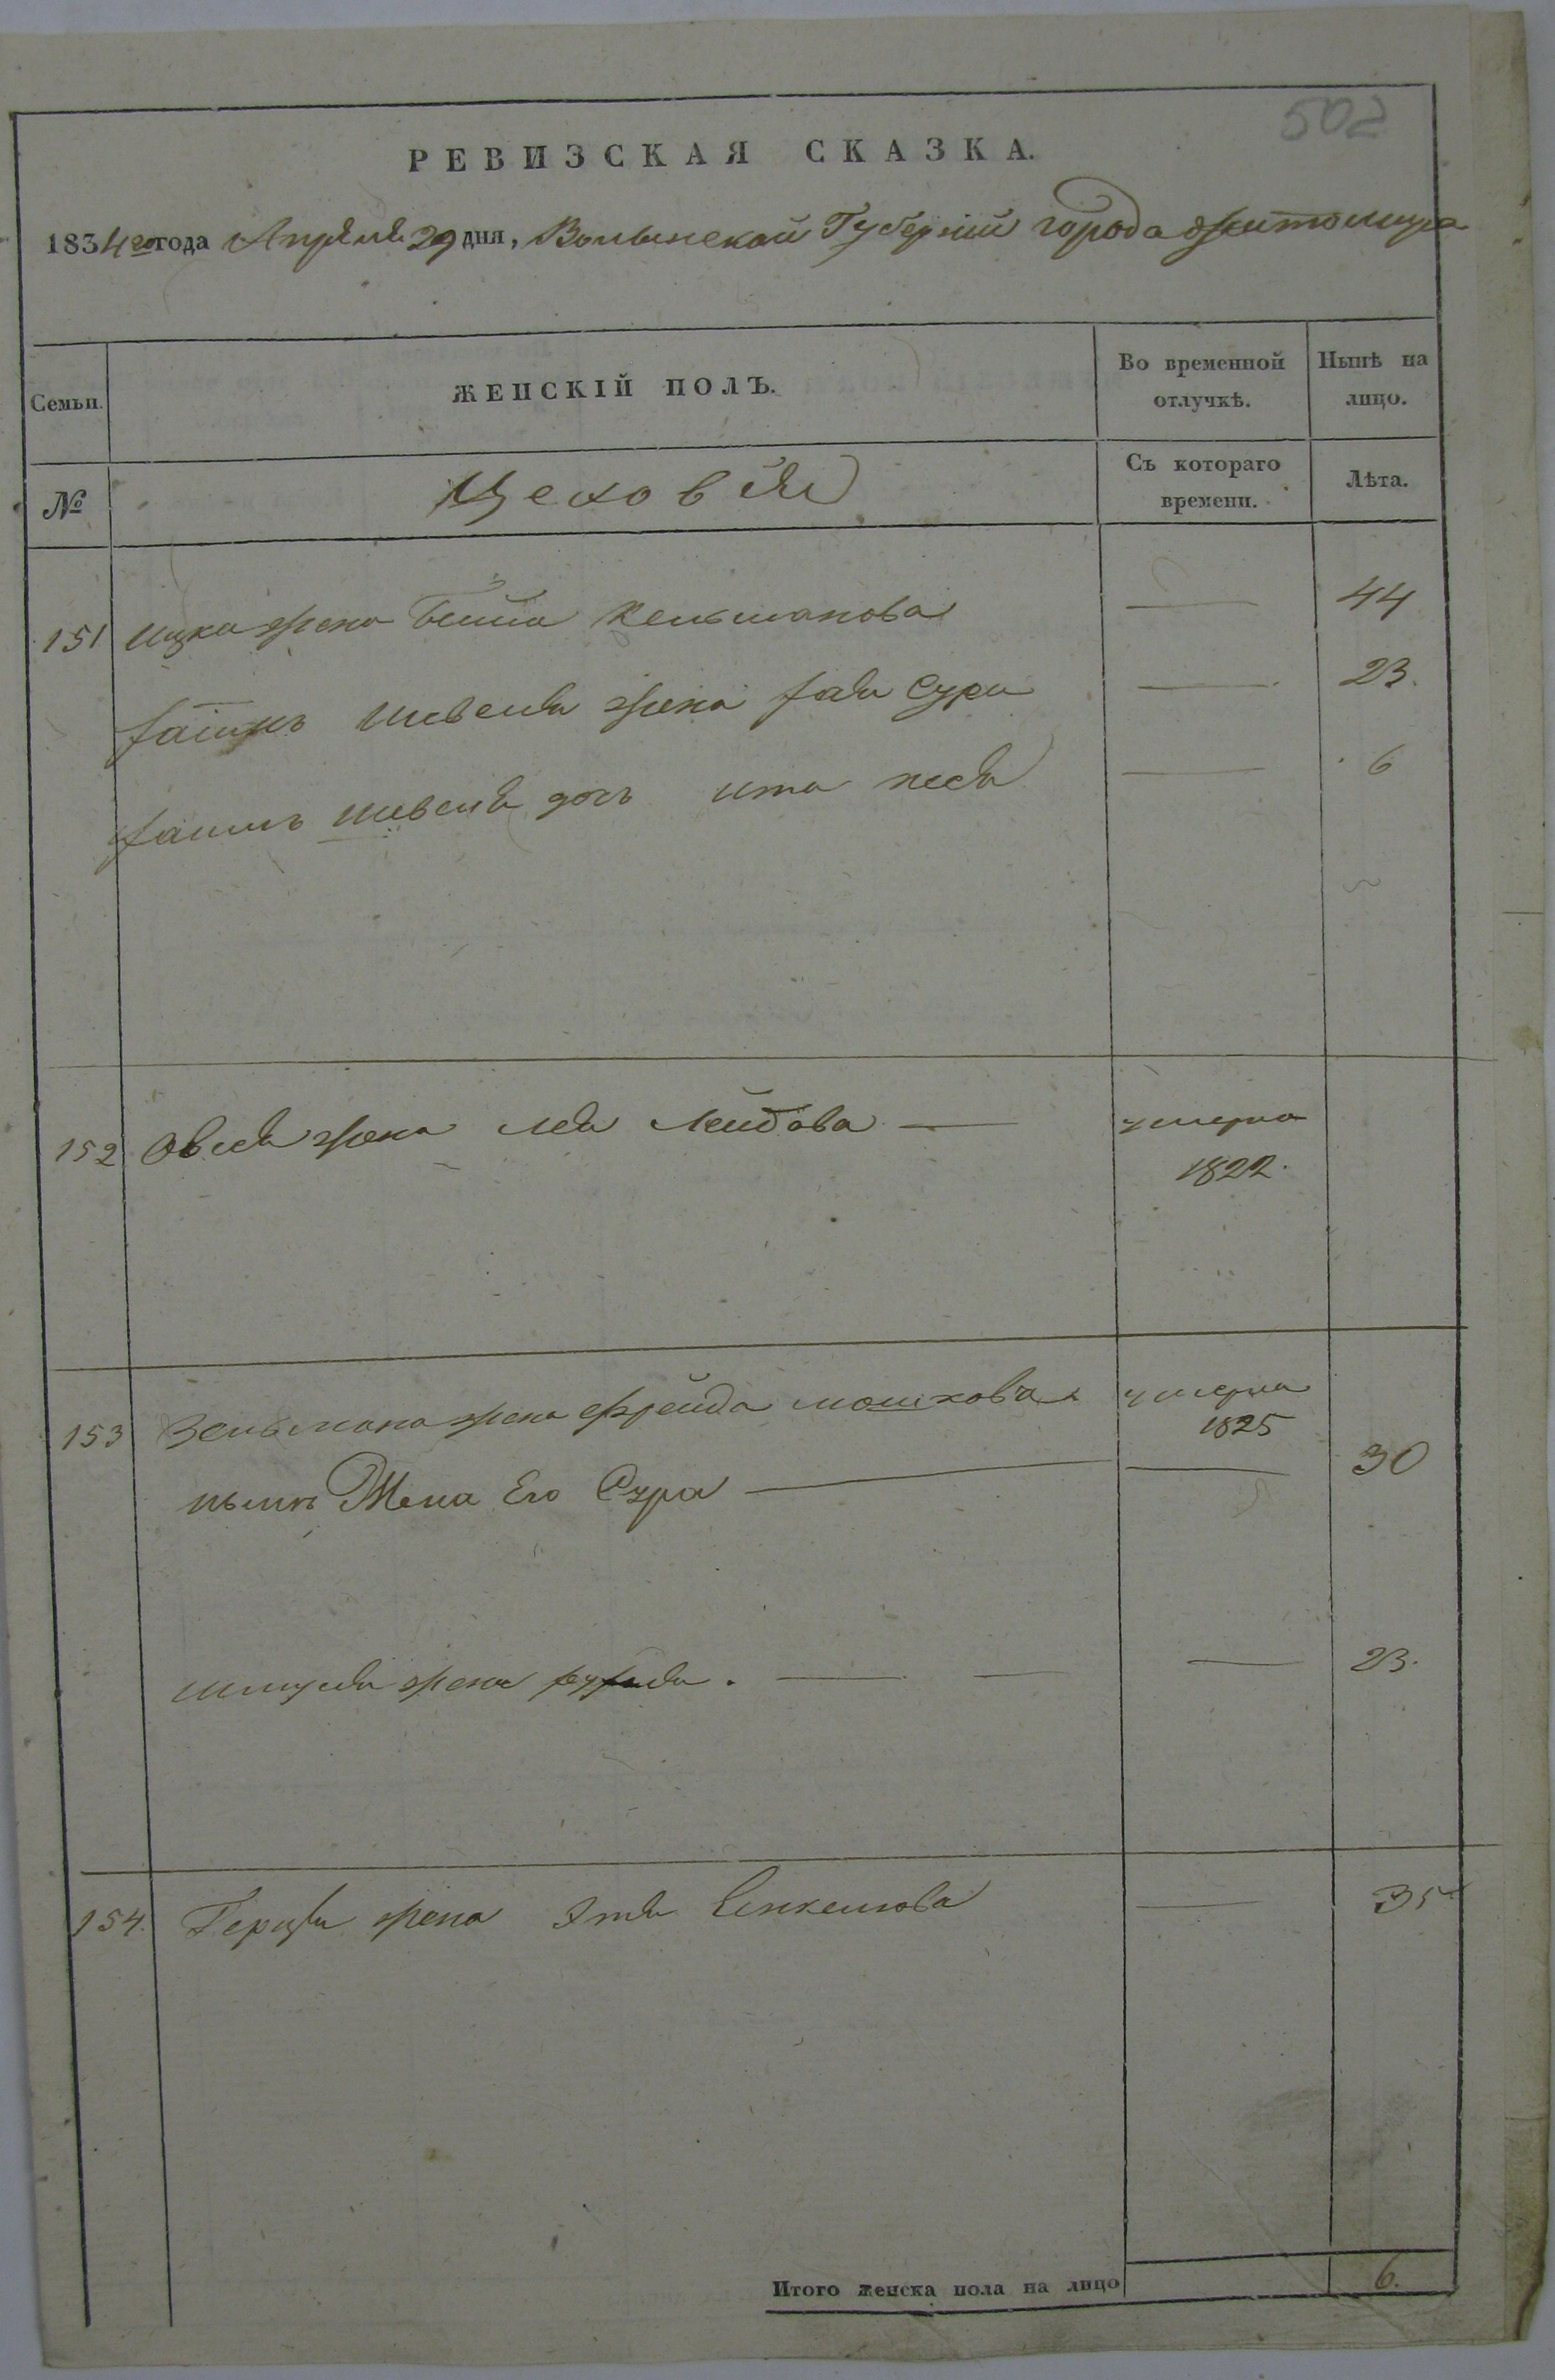 502
РЕВИЗСКАЯ СКАЗКА.
1834го года Апреля 29 дня, Волынской Губернии города Житомира
Семьи.
ЖЕНСКІЙ ПОЛЪ.
Во временной отлучкѣ.
Нынѣ на лицо.
№
Цеховъи
Съ котораго времени.
Лѣта.
151 Ицка жена Бейла Кельманова — 44
Шевеля жена Хая Сура — 23.
Шевеля дочь Ита песя — 6
152 Овсея жена Лея Лейбова — умерла
1822.
153 Зельмана жена Фрейда Мошкова умерла
1825
Жена Его Сура — 30
Шмуля жена — 23.
154. Герцка жена Этя — 35
Итого женска пола на лицо 6.